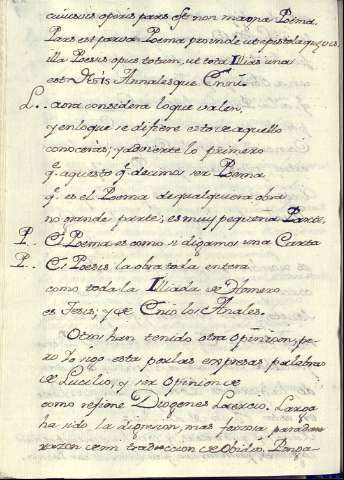 cuiusvis operis pars est non magna Poema.
Pars est parva Poema proinde ut epistola quevis,
illa Poesis opus totum, ut tota Illias una
est Thesis Annalesque Enni.
L. aora considera lo que valen,
y en lo que se difiere esto de aquello
conoceràs; y advierte lo primero
q.e aquesto q.e decimos ser Poema
q.e es el Poema de qualquiera obra
no grande parte; es muy pequeña Parte.
P. El Poema es como si digamos una Carta
P. El Poesis la obra toda entera
como toda la Illiada de Homero
es Tesis, y de Enio los Anales.
Otros han tenido otra opinion, pe-
ro yo sigo esta por las expresas palabras
de Lucilio, y ser opinion de
como refiere Diogenes Laercio. Larga
ha sido la digresion, mas forzosa para dar
razon de mi traduccion de Obidio. Ponga-